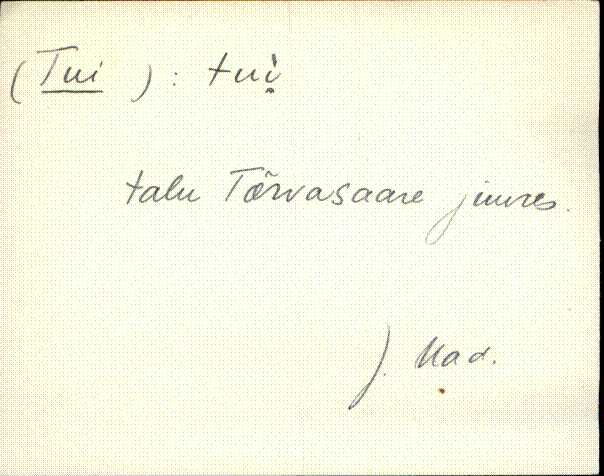 (Tui) : tui̯
talu Tõrvasaare juures.
J. Mad.